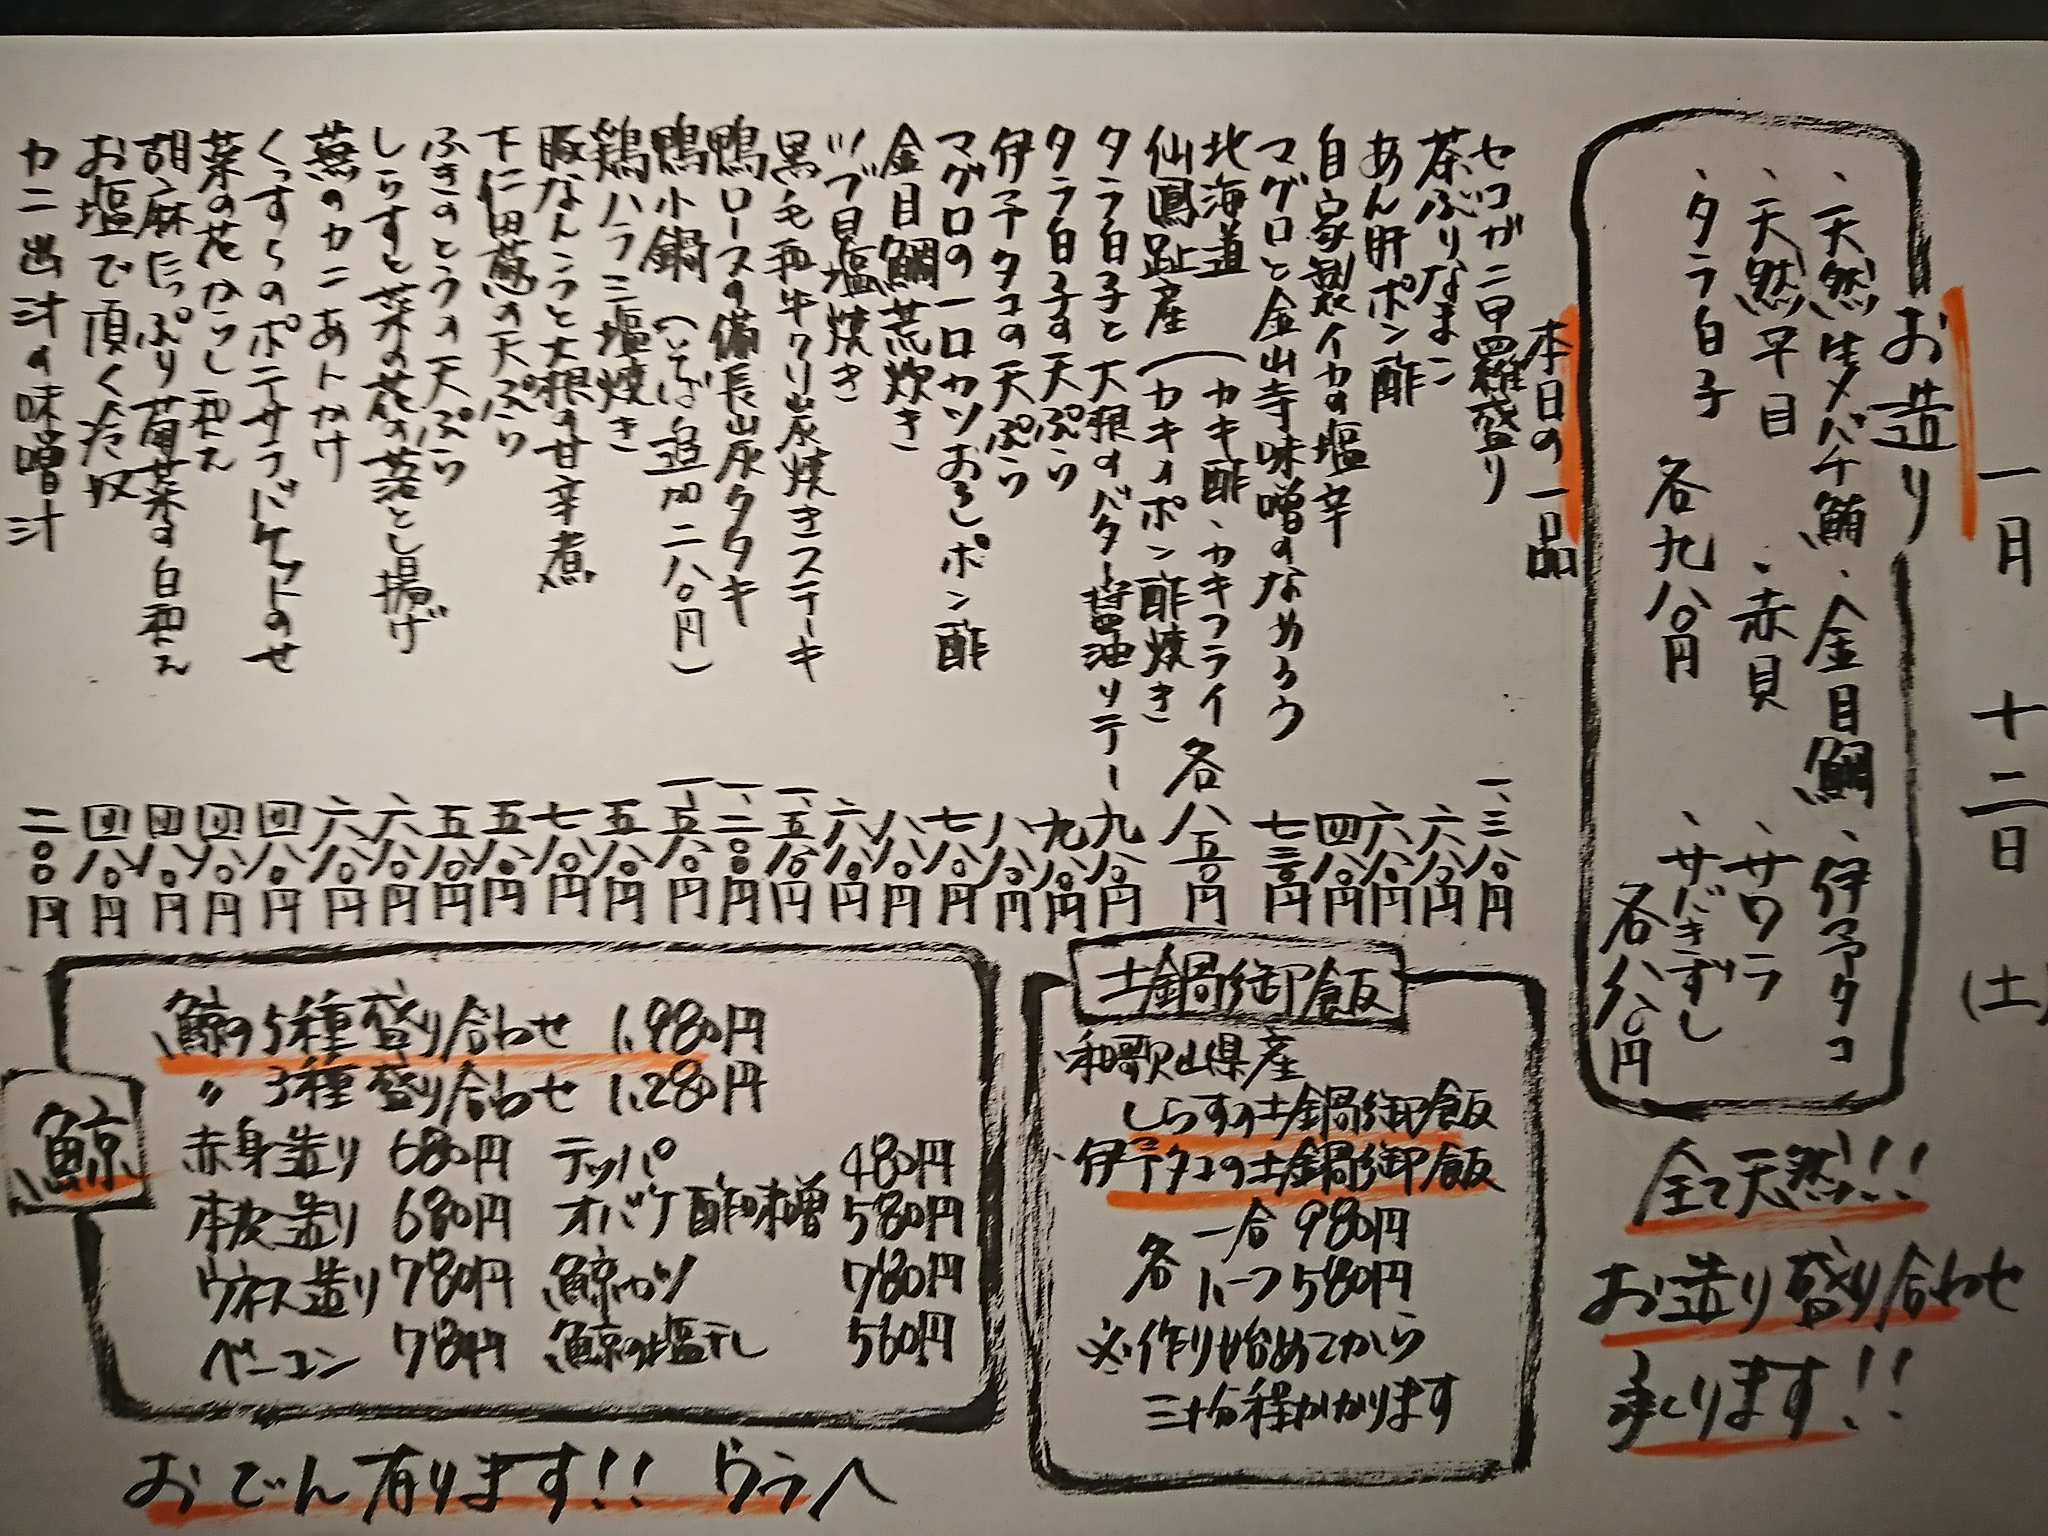 一月 十二日 (土)
お造り
、天然生メバチ鮪 、金目鯛 、伊予タコ
、天然平目 、赤貝 、サワラ
、タラ白子 、サバきずし
各九八〇円
各八八〇円
全て天然!!
お造り盛り合わせ
承ります!!
本日の一品
セコガニ甲羅盛り 一、三八〇円
茶ぶりなまこ 六八〇円
あん肝ポン酢 六八〇円
自家製イカの塩辛 四八〇円
マグロと金山寺味噌のなめろう 七三〇円
北海道 (カキ酢、カキフライ
仙鳳趾産 (カキのポン酢焼き 各八五〇円
タラ白子と大根のバター醤油ソテー 九八〇円
タラ白子の天ぷら 九八〇円
伊予タコの天ぷら 八八〇円
マグロの一口カツおろしポン酢 七八〇円
金目鯛荒炊き 八八〇円
ツブ貝塩焼き 六八〇円
黒毛和牛クリ炭焼きステーキ 一、五八〇円
鴨ロースの備長炭タタキ 一、二〇〇円
鴨小鍋(そば追加二八〇円) 一、五八〇円
鶏ハラミ塩焼き 五八〇円
豚なんこつと大根の甘辛煮 七八〇円
下仁田葱の天ぷら 五八〇円
ふきのとうの天ぷら 五八〇円
しらすと菜の花の落とし揚げ 六八〇円
蕪のカニあんかけ 六八〇円
くっすらのポテサラバケットのせ 四八〇円
菜の花からし和え 四八〇円
胡麻たっぷり菊菜の白和え 四八〇円
お塩で頂く冷奴 四八〇円
カニ出汁の味噌汁 二〇〇円
土鍋御飯
、和歌山県産
しらすの土鍋御飯
、伊予タコの土鍋御飯
各 一合 980円
ハーフ 580円
※作り始めてから
三十分程かかります
鯨
鯨の5種盛り合わせ 1,980円
〃 3種盛り合わせ 1,280円
赤身造り 680円 テッパ 480円
本皮造り 680円 オバケ酢味噌 580円
ウネス造り 780円 鯨カツ 780円
ベーコン 780円 鯨の塩干し 560円
おでん有ります!! ウラへ